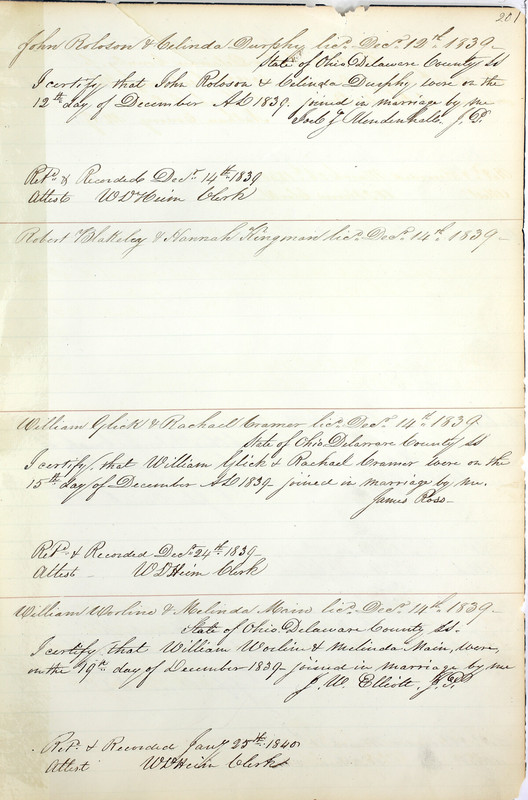 201
John Roloson & Celinda Durphy licd. Decr. 12th. 1839–
State of Ohio Delaware County ss
I certify that John Roloson & Celinda Durphy were on the
12th day of December AD 1839 joined in marriage by me
Mendenhall J. P.
Retd. & Recorded Decr. 14th 1839
Attest W D Heim Clerk
Robert Blakeley & Hannah Kingman licd. Decr. 14th. 1839–
William Glick & Rachael Cramer licd. Decr. 14th. 1839
State of Ohio Delaware County ss
I certify that William Glick & Rachael Cramer were on the
15th day of December AD 1839 joined in marriage by me.
James Ross–
Retd. & Recorded Decr. 24th. 1839–
Attest – W D Heim Clerk
William Worline & Melinda Main licd. Decr. 14th. 1839–
State of Ohio Delaware County ss.
I certify that William Worline & Melinda Main, were,
on the 19th day of December 1839– joined in marriage by me
J. W. Elliott, J. P.
Retd. & Recorded Jany 25th. 1840
Attest W D Heim Clerk